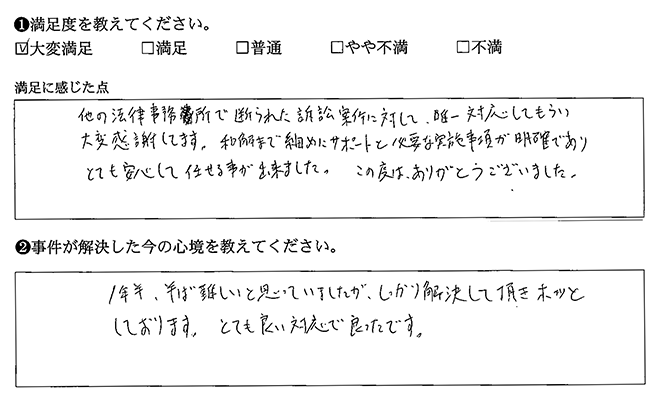 ❶満足度を教えてください。
☑大変満足 □満足 □普通 □やや不満 □不満
満足に感じた点
他の法律事務所で断られた訴訟案件に対して、唯一対応してもらい
大変感謝してます。和解まで細めにサポートと必要な実施事項が明確であり
とても安心して任せる事が出来ました。この度は、ありがとうございました。
❷事件が解決した今の心境を教えてください。
1年半、半ば難しいと思っていましたが、しっかり解決して頂きホッと
しております。とても良い対応で良かったです。